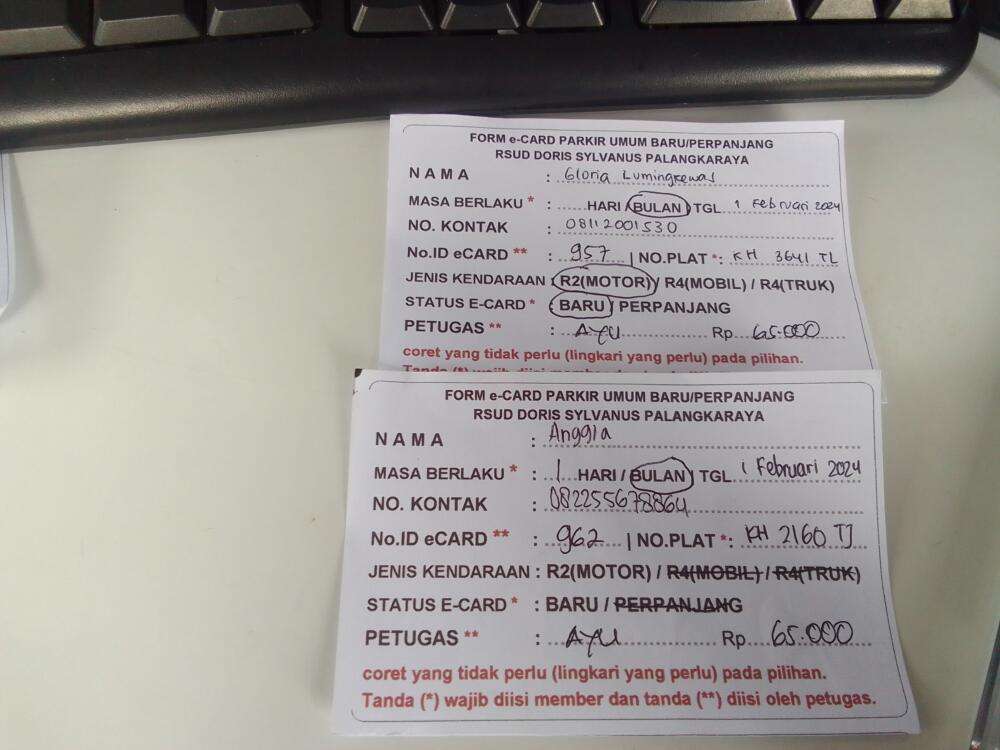 FORM e-CARD PARKIR UMUM BARU/PERPANJANG
RSUD DORIS SYLVANUS PALANGKARAYA
NAMA : Gloria Lumingkewas
MASA BERLAKU * : ......HARI / BULAN / TGL. 1 Februari 2024
NO. KONTAK : 08112001530
No.ID eCARD ** : 957 | NO.PLAT *: KH 3641 TL
JENIS KENDARAAN : R2(MOTOR) / R4(MOBIL) / R4(TRUK)
STATUS E-CARD * : BARU / PERPANJANG
PETUGAS ** : AYU Rp 65.000
coret yang tidak perlu (lingkari yang perlu) pada pilihan.
FORM e-CARD PARKIR UMUM BARU/PERPANJANG
RSUD DORIS SYLVANUS PALANGKARAYA
NAMA : Anggia
MASA BERLAKU * : 1 HARI / BULAN / TGL. 1 Februari 2024
NO. KONTAK : 082255678864
No.ID eCARD ** : 962 | NO.PLAT *: KH 2160 TJ
JENIS KENDARAAN : R2(MOTOR) / R4(MOBIL) / R4(TRUK)
STATUS E-CARD * : BARU / PERPANJANG
PETUGAS ** : AYU Rp 65.000
coret yang tidak perlu (lingkari yang perlu) pada pilihan.
Tanda (*) wajib diisi member dan tanda (**) diisi oleh petugas.